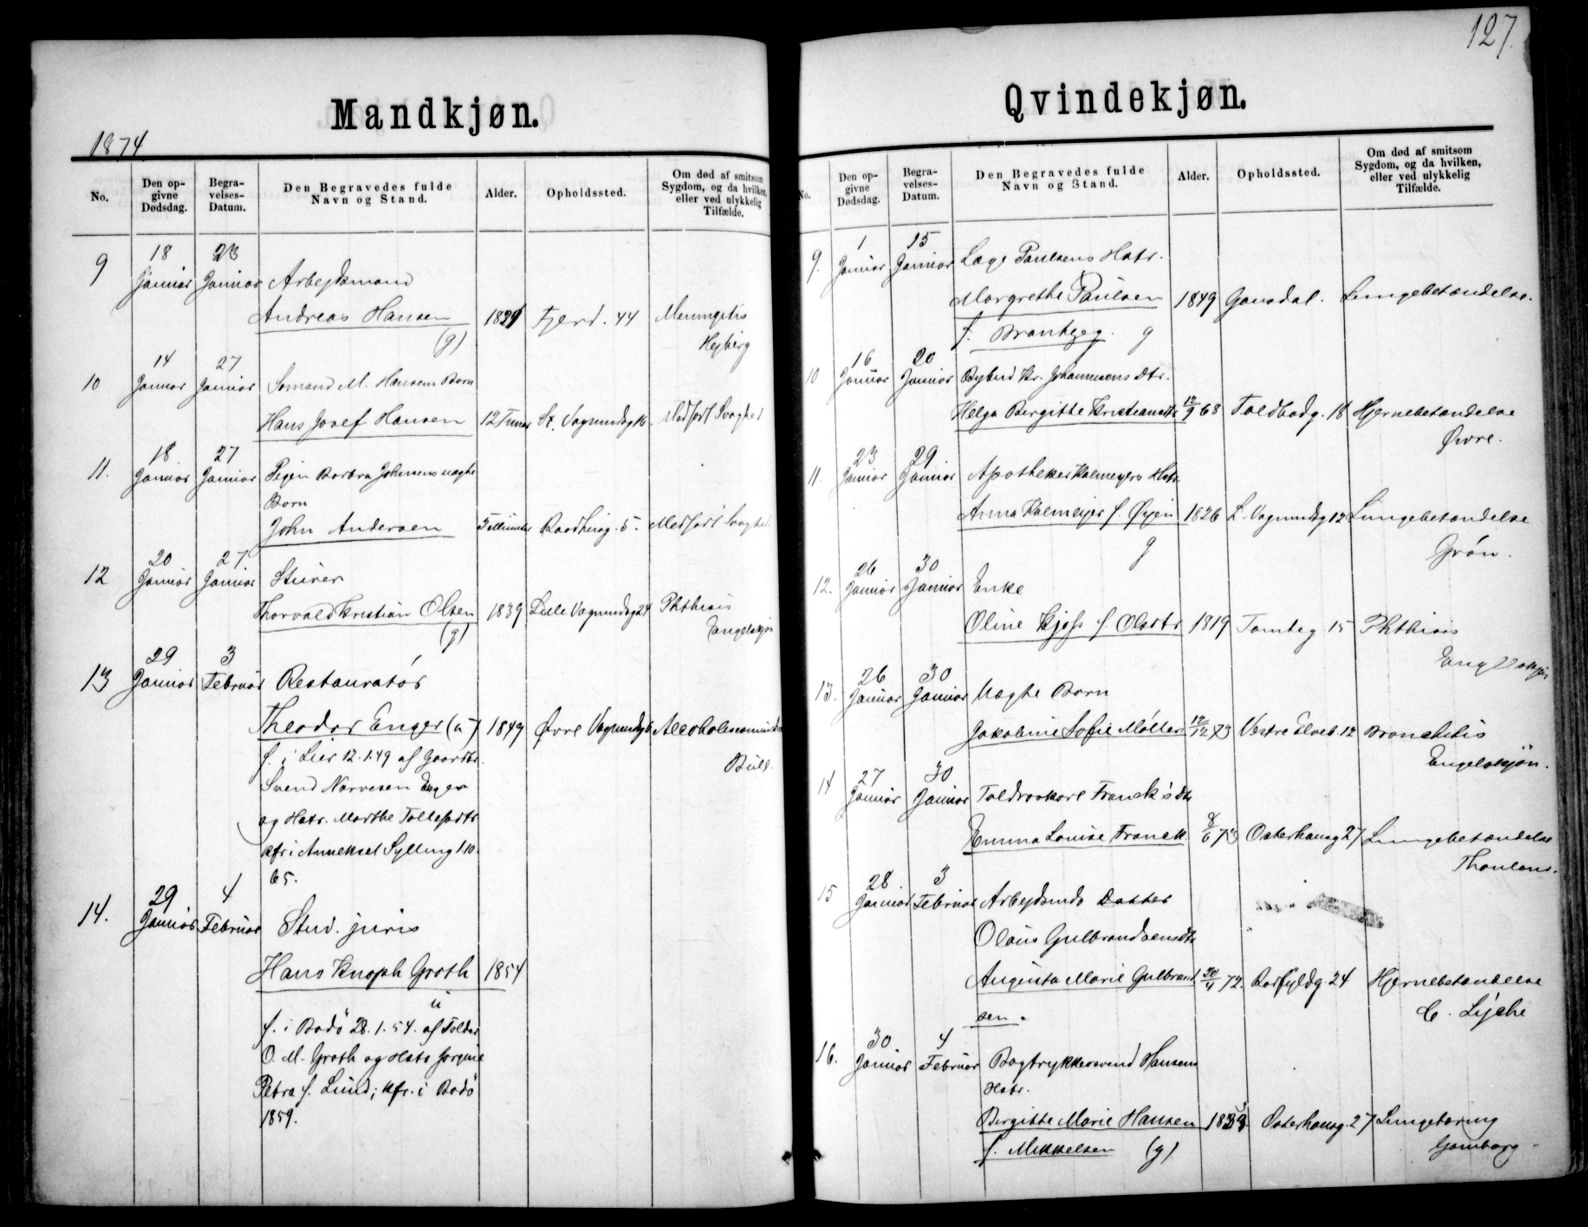 127.
Mandkjøn.
1874
No.
Den op-
givne
Dødsdag.
Begra-
velses-
Datum.
Den Begravedes fulde
Navn og Stand.
Alder.
Opholdssted.
Om død af smitsom
Sygdom, og da hvilken,
eller ved ulykkelig
Tilfælde.
9 18 Januar 23 Januar Arbejdsmand
Andreas Hansen 1829 Fjerd. 44 Meningitis
(g) Hejberg
10 14 Januar 27 Januar Sømand M. Hansens Barn
Hans Josef Hansen 12 Timer St. Vognmdsg 16 Medfødt Svaghed
11. 18 Januar 27 Januar Pigen Barbra Johnsens uægte
Barn
John Andersen Raadhusg. 5. Medfødt Svaghed
12 20 Januar 27 Januar Stuer
Thorvald Kristian Olsen 1839 Lille Vognmdsg 24 Phthisis
(g) Engelskjøn
13 29 Januar 3 Februar Restauratør
Theodor Enger (u) 1849 Øvre Vognmdsg 6 Alcoholismus
f. i Lier 12.1.49 af Gaardbr. Bull.
Svend Narvesen Enger
og Hstr. Marthe Tollefsdtr
kfr i Annekset Sylling 1.10.
65.
14. 29 Januar 4 Februar Stud. juris
Hans Knoph Groth 1854
u
f. i Bodø 28.1.54. af Tolder
O. M. Groth og Hstr Jorgine
Petra f. Lund; kfr. i Bodø
1859.
Qvindekjøn.
No.
Den op-
givne
Dødsdag.
Begra-
velses-
Datum.
Den Begravedes fulde
Navn og Stand.
Alder.
Opholdssted.
Om død af smitsom
Sygdom, og da hvilken,
eller ved ulykkelig
Tilfælde.
9. 1 Januar 15 Januar Læge Paulsens Hstr.
Margrethe Paulsen 1849 Gausdal. Lungebetændelse.
f. g
10 16 Januar 20 Januar Bybud Kr. Johannesens Dtr.
Helga Birgitte Kristiansdtr 12/9 68 Toldbodg. 18 Hjernebetændelse
Øvre.
11. 23 Januar 29 Januar Apotheker Kalmeyers Hstr.
Anna Kalmeijer f. Øyen 1826 L. Vognmdsg 12 Lungebetændelse
g Grøn.
12. 26 Januar 30 Januar Enke
Oline Kjøs f. Olsdtr 1819 Tomteg 15 Phthisis
Engelskjøn
13. 26 Januar 30 Januar Uægte Barn
Jakobine Sofie Møller 12/12 73 Vestre Elveb. 12 Bronchitis
Engelskjøn.
14 27 Januar 30 Januar Toldroskarl Franck's Dtr
Emma Louise Franck 8/6 73 Osterhausg 27 Lungebetændelse
15 28. Januar 3 Februar Arbejdsmds Datter
Olaus Gulbrandsens dtr
Augusta Marie Gulbrand 30/4 72. Rosfyldg 24 Hjernebetændelse
sen. C. Lyche
16. 30 Januar 4 Februar Bogtrykkersvend Hansens
Hstr.
Birgitte Marie Hansen Osterhausg. 27 Lungetæring
f. Mikkelsen (g) Gamborg